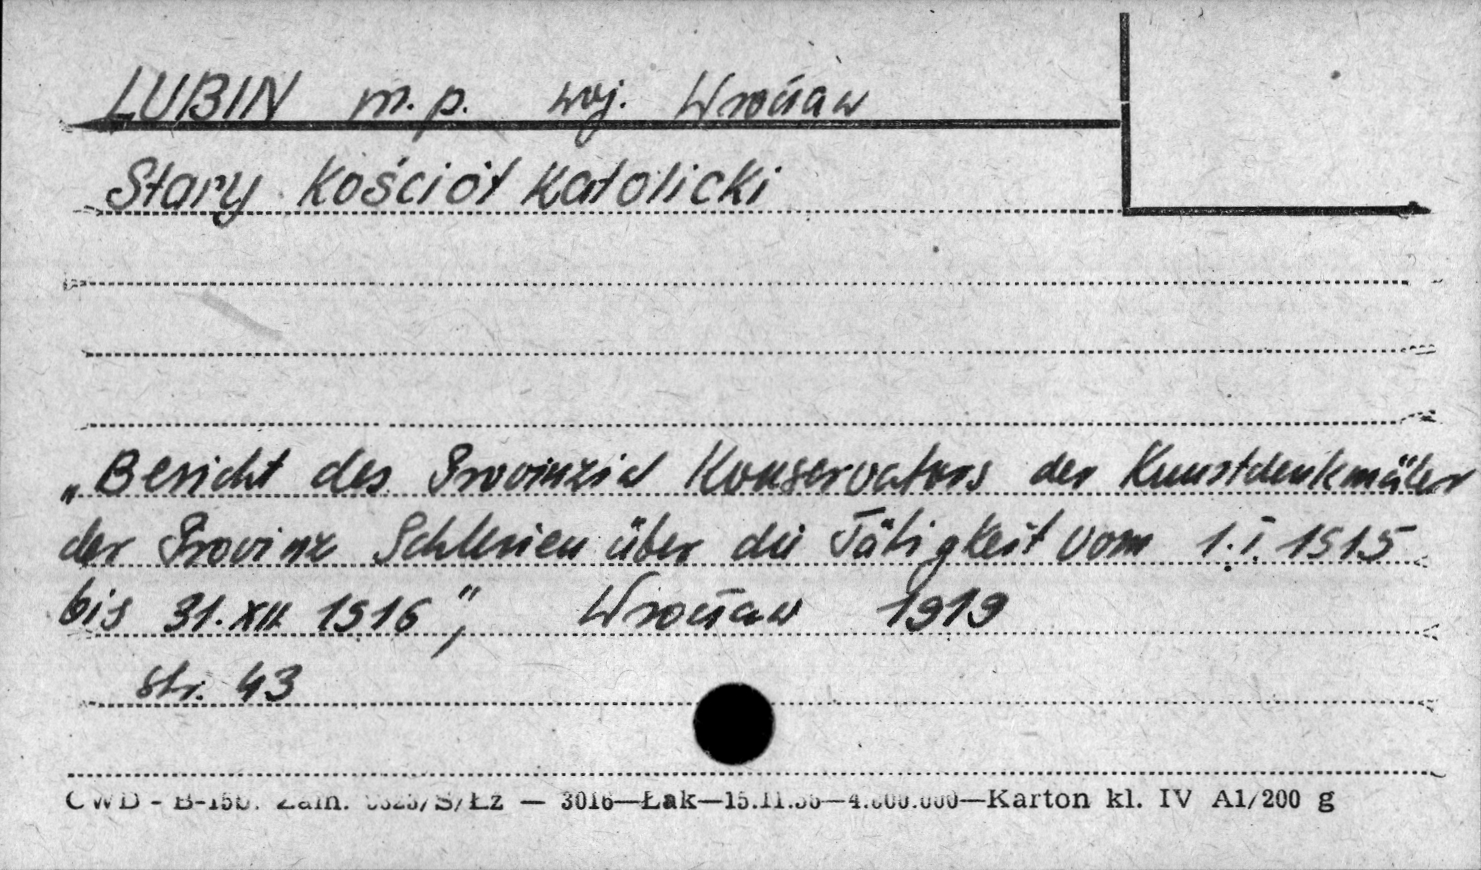 LUBIN m.p. woj. Wrocław
Stary Kościół Katolicki
„Bericht des Provinzial Konservators der Kunstdenkmäler
der Provinz Schlesien über die Tätigkeit vom 1.I.1915
bis 31.XII 1916", Wrocław 1919
str. 43
CWD - B-15b. Zam. /S/Łż — 3016—Łak—15.11.56—4.000.000—Karton kl. IV A1/200 g